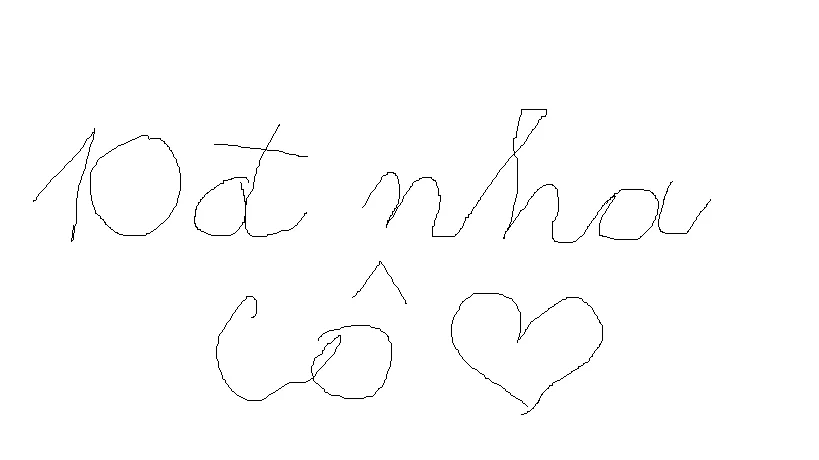 10đ nha
cô